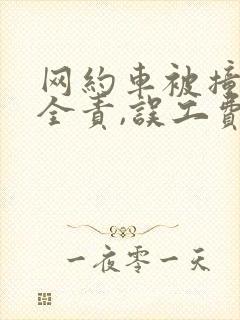 网約車被撞
全責,誤工費
一夜零一天